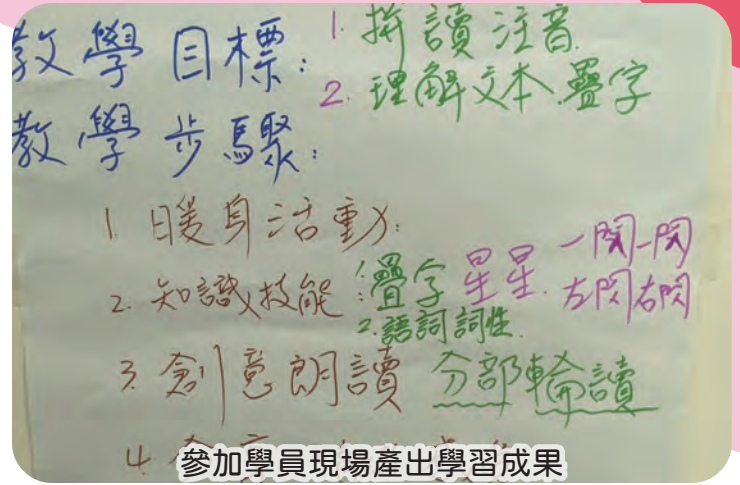 教學目標：1. 拼讀注音
2. 理解文本、疊字
教學步驟：
1. 暖身活動：
2. 知識技能：1.疊字 星星、一閃一閃
左閃右閃
2.語詞詞性
3. 創意朗讀 分部輪讀
4.
參加學員現場產出學習成果